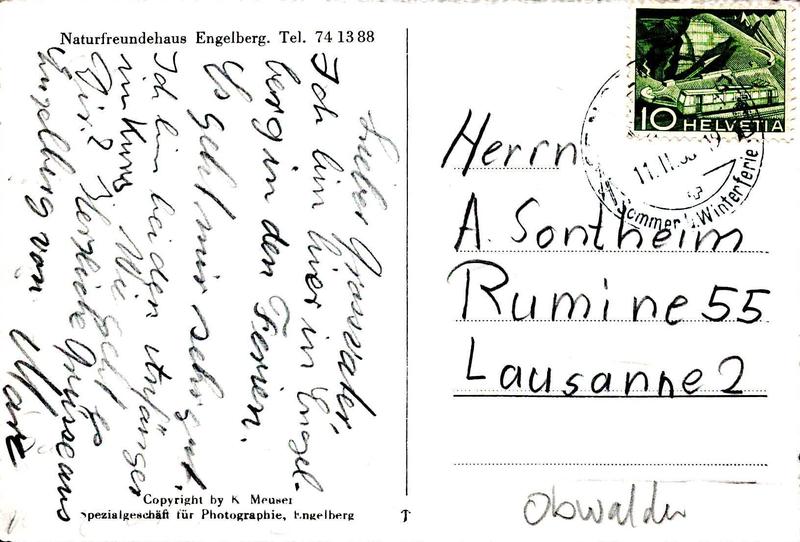 Naturfreundehaus Engelberg. Tel. 74 13 88
Lieber Grossvater,
Ich bin hier in Engel-
berg in den Ferien.
Es geht mir sehr gut.
Ich bin bei den Anfänger
im Kurs. Wie geht es
Dir? Herzliche Grüsse aus
Engelberg von
Marc
Copyright by K. Meuser
Spezialgeschäft für Photographie, Engelberg
10 HELVETIA
11.II.
Sommer u. Winterferie
Herrn
A. Sontheim
Rumine 55
Lausanne 2
Obwalden